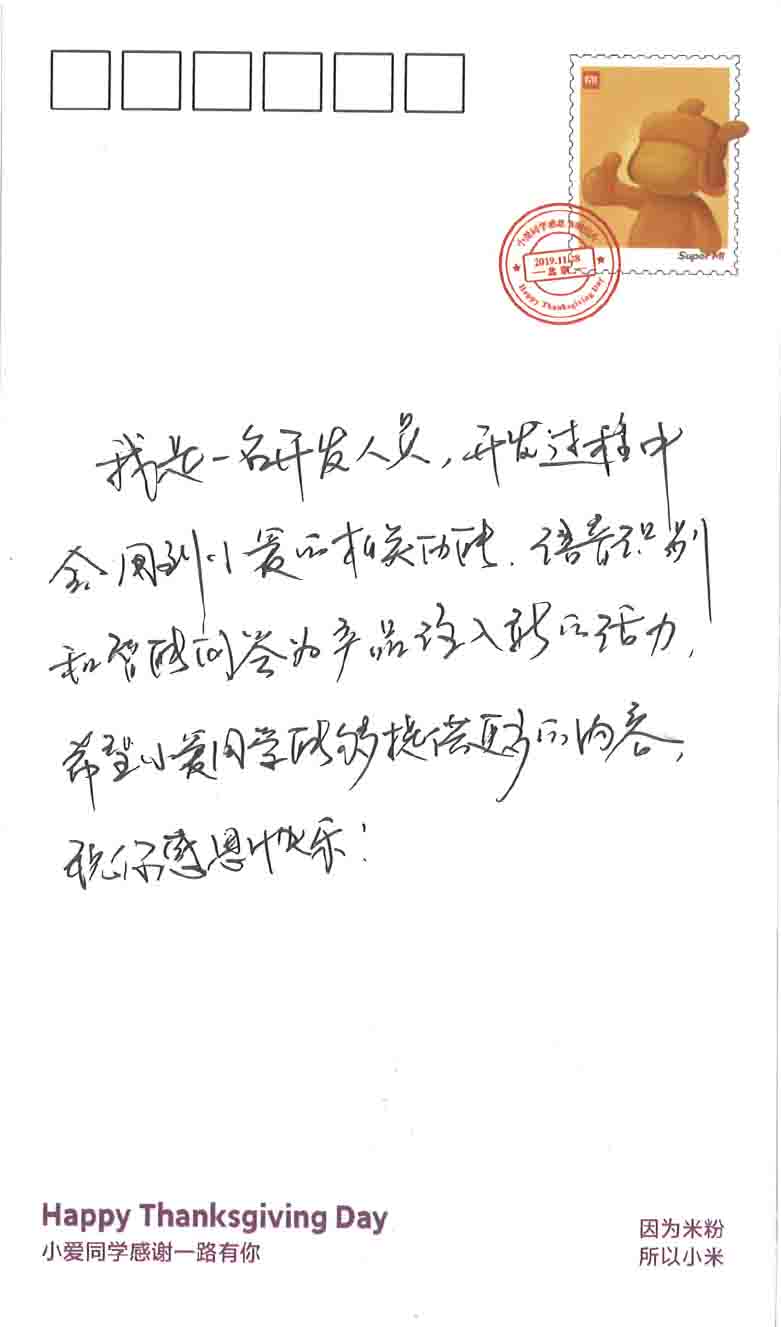 MI
Super MI
小爱同学感恩节
2019.11.28
北京
Happy Thanksgiving Day
我是一名开发人员,开发过程中
会用到小爱的相关功能.语音识别
和智能问答为产品注入新的活力,
希望小爱同学能够提供更多的内容,
祝你感恩快乐!
Happy Thanksgiving Day
小爱同学感谢一路有你
因为米粉
所以小米